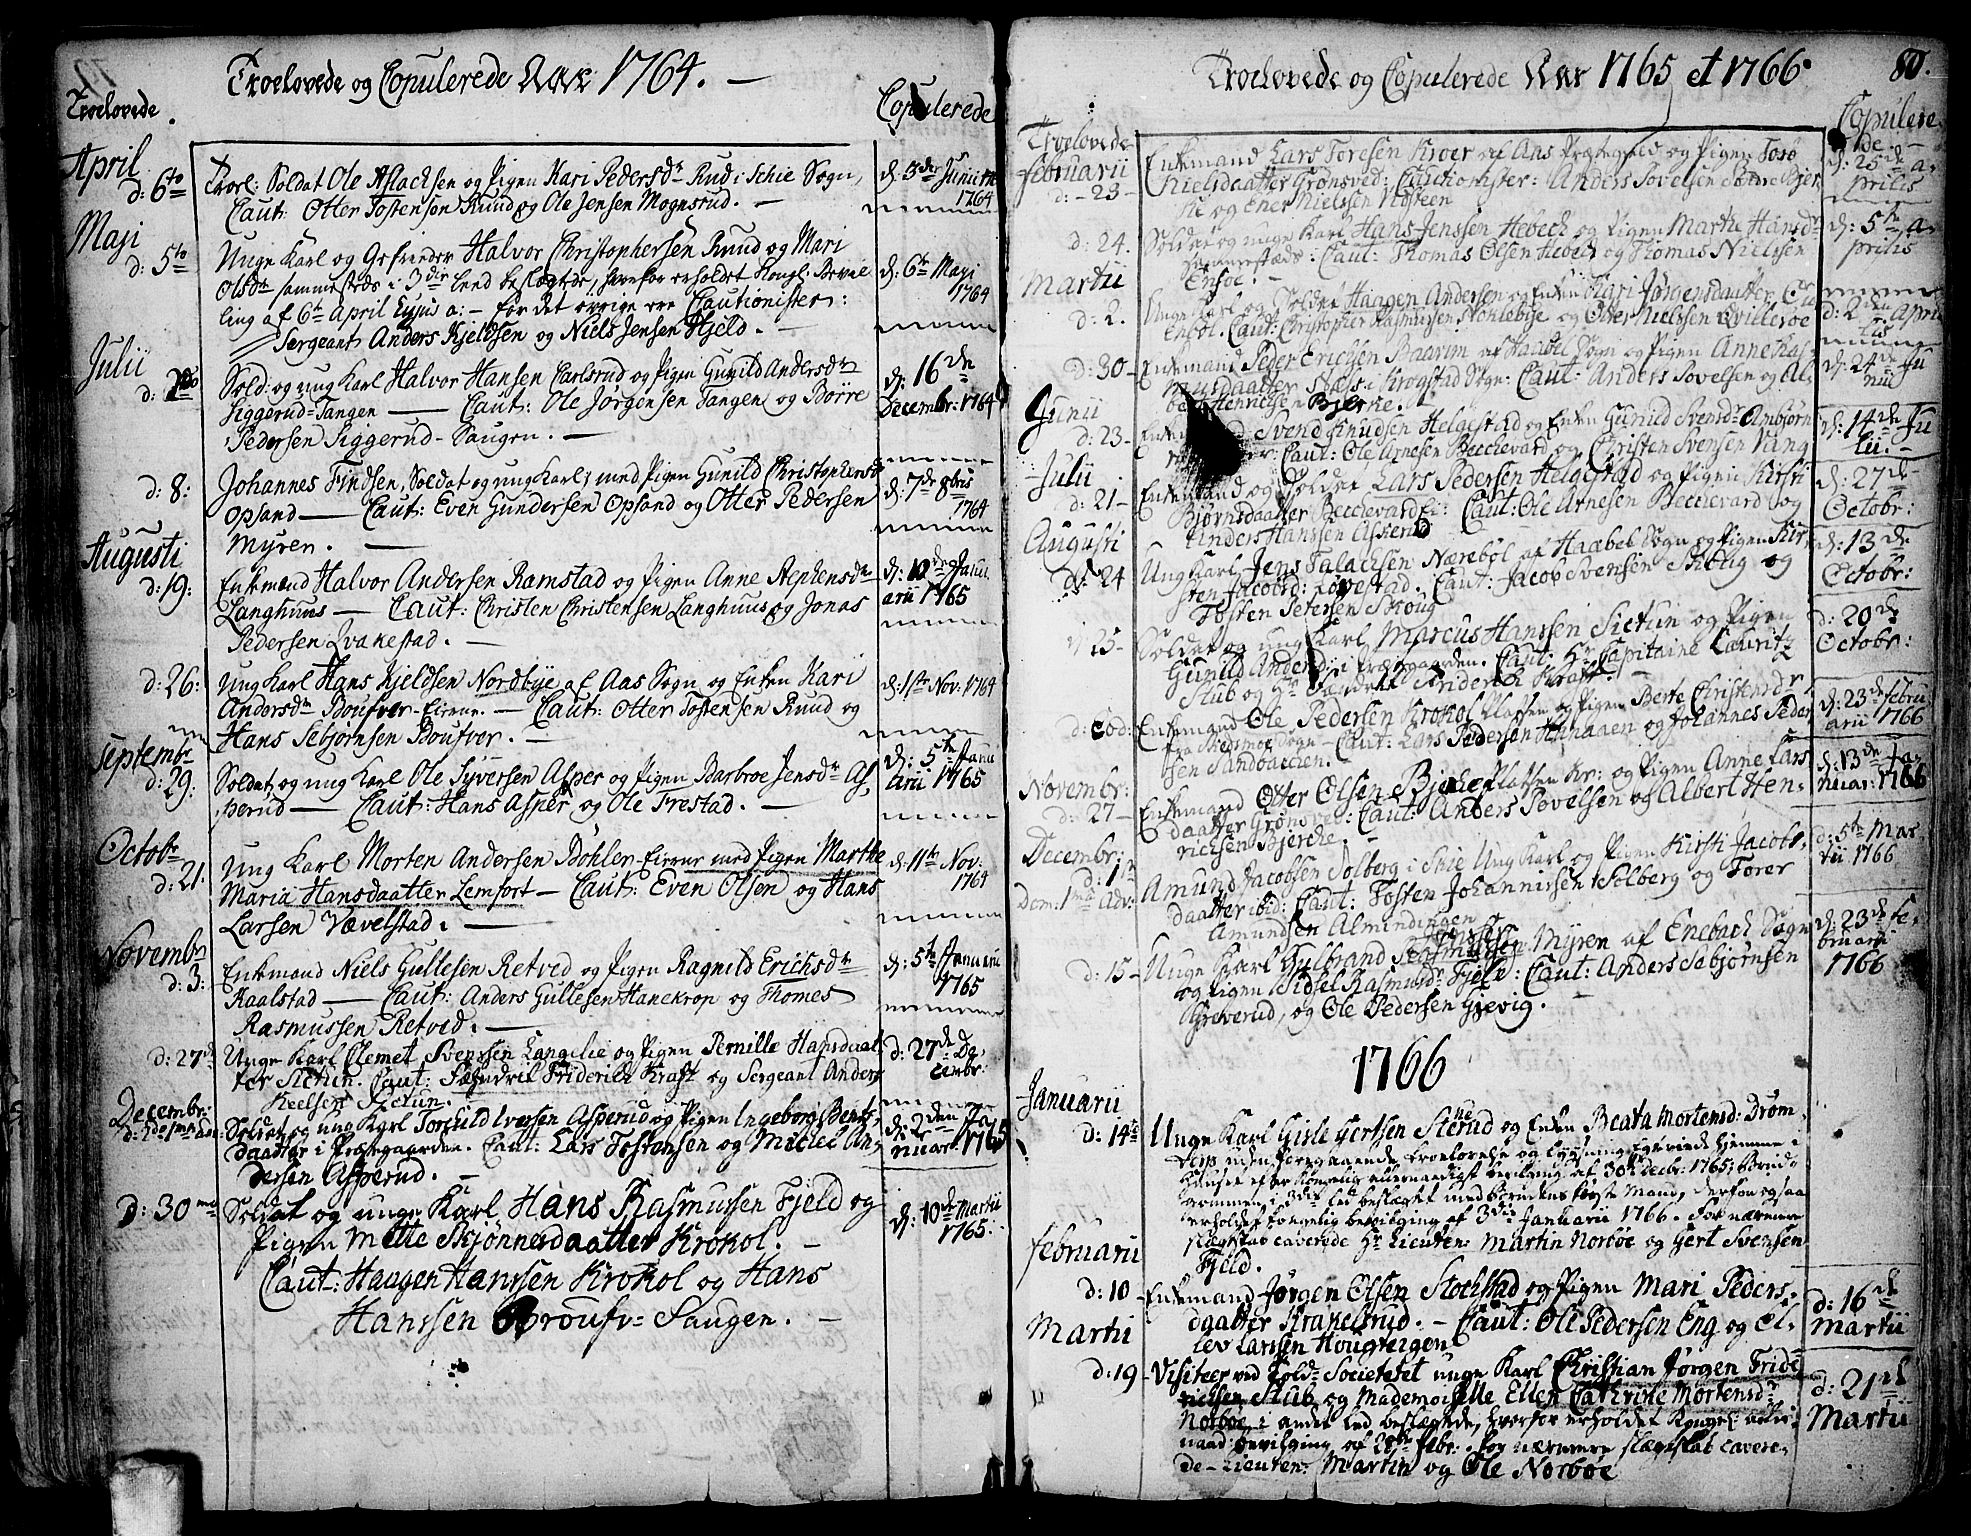 Troelovede og Copulerede Aar 1764. —
Troelovede.
Copulerede
April
d: 6to
Trol: Soldat Ole Aslachsen og Pigen Kari Pedersdtr Rud i Schie Sogn,
Caut: Otter Tostensen Ruud og Ole Jensen Mognsrud. —
d: 3de Junii
1764
Maji
d: 5to
Unge Karl og Gefreeder Halvor Christophersen Ruud og Mari
Olsdtr sammesteds i 3die leed beslægtede, herefor erholdet Kongl: Bevil
ling af 6te April hujus a: — for det øvrige ere Cautionister:
Sergeant Anders Kjeldsen og Niels Jensen Hjeld. —
d: 6te Maji
1764
Julii
Sold: og ung Karl Halvor Hansen Carlsrud og Pigen Gunild Andersdtr
Siggerud-Tangen — Caut: Ole Jørgensen Tangen og Børre
Pedersen Siggerud-Saugen. —
d: 16de
Decembr: 1764
d: 8:
Johannes Findsen, Soldat og ung Karl; med Pigen Gunild Christophersdtr
Opsand — Caut: Even Gundersen Opsand og Otter Pedersen
Myren. —
d: 7de 8bris
1764
Augusti
d: 19:
Enkemand Halvor Andersen Ramstad og Pigen Anne Stephensdtr
Langhuus — Caut: Christen Christensen Langhuus og Jonas
Pedersen Qvakestad. —
d: 10de Janu
arii 1765
d: 26:
Ung Karl Hans Kjeldsen Nordbye af Aas Sogn og Enken Kari
Andersdtr Boufver-Eierne. — Caut: Otter Tostensen Ruud og
Hans Sebjørnsen Boufver. —
d: 1ste Nov: 1764
Septembr
d: 29:
Soldat og ung Karl Ole Syversen Asper og Pigen Barbroe Jensdtr As,
perud — Caut: Hans Asper og Ole Frestad. —
d: 5te Janu
arii 1765
Octobr
d: 21.
Ung Karl Morten Andersen Bøhler-Eierne med Pigen Marthe
Maria Hansdaatter Lemfort — Caut: Even Olsen og Hans
Larsen Vævelstad. —
d: 11te Nov:
1764
Novembr
d: 3:
Enkemand Niels Gullesen Retved og Pigen Ragnild Erichsdtr
Kaalstad — Caut: Anders Gullesen Hanekrop og Thomes
Rasmussen Retved. —
d: 5te Januarii
1765
d: 27de
Unge Karl Clemet Svenssen Langelie og Pigen Pernille Hansdaat
ter Sictun. Caut: Fændrik Friderich Kraft og Sergeant Anders
Keelsen Sictun.
d: 27de De,
cembr:
Decembr:
Soldat og ung Karl Torkild Iversen Asperud og Pigen Ingeborg Bents
daatter i Præstegaarden. Caut: Lars Tostensen og Michel An,
dersen Asperud. —
d: 2den Ja,
nuar: 1765
D: 30
Soldat og unge Karl Hans Rasmussen Fjeld og
Pigen Mette Skjønnersdaatter Krokol. —
Caut: Haagen Hanssen Krokol og Hans
Hanssen Broufv= Saugen. —
d: 10de Martii
1765.
Troelovede og Copulerede Aar 1765 et 1766.
80.
Troelovede
Copulere
de —
Februarii
d: 23
Enkemand Lars Toresen Kroer af Ans Prætegeld og Pigen Torbo
Nielsdaatter Grønsved: Cautionister: Anders Povelsen Børre Bjer
ke og Ener Nielssen Nosteen
d: 25de A=
prilis
d: 24.
Soldat og unge Karl Hans Jenssen Hebeck og Pigen Marthe Hansdr
sammesteds: Caut: Thomas Olsen Hebeck og Thomas Nielssen
Ensoe. —
d: 5te A=
prilis
Martii
d: 2.
Unge Karl og Soldat Haagen Andersen og Enken Kari Jørgensdaatter
Enbol. Caut: Christopher Rasmussen Nohlebye og Otter Nielssen Qvillesøe
d: 2den April
lis
d: 30
Enkemand Peder Erichsen Baarim af Haabel Sogn og Pigen Anne Ras,
musdaatter Næss i Krogstad Sogn: Caut: Anders Povelsen og Al,
bert Henrichsen Bjerke.
d: 24de Ju
nii
Junii
d: 23
Svend Knudsen Helgestad og Enken Gunild Svensdr Ambjørn
Caut: Ole Arnesen Becchevard og Christen Svensen Vang
d: 14de Ju
lii.
Julii
d: 21
Enkemand og Soldat Lars Pedersen Helgestad og Pigen Kirsti
Bjørnsdaatter Becchevard: Caut: Ole Arnesen Becchevard og
Anders Hanssen Ascherud
d: 27de
Octobr:
Augusti
d: 24
Ung Karl Jens Falachsen Nærebøl af Haabel Sogn og Pigen Kir,
sten Jacobd: Lovestad. Caut: Jacob Svensen Skibig og
Tosten Petersen Skoug
d: 13de
Octobr:
25
Soldat og ung Karl Marcus Hanssen Sictun og Pigen
Gunild Andersd: i Prætegaarden. Caut: Hr Capitaine Lauritz
Stub og Hr Fændrik Friderich Kraft. —
d: 20de
Octobr:
d: eod:
Enkemand Ole Pedersen Krokol Platsen og Pigen Berte Christensdr
fra Skesmoe Sogn — Caut: Lars Pedersen Hannaaen og Johannes Peder
sen Sandbachen.
d: 23de Febru
arii 1766
Novembr:
d: 27
Enkemand Otter Olsen Bjerke Platsen Kr: og Pigen Anne Lars
daatter Grønsved: Caut: Anders Povelsen og Albert Hen,
richsen Bjerche. —
d: 13de Ja,
nuar: 1766
Decembr:
d: 1ste
Dom: 1ma Adv:
Amund Jacobsen Solberg i Skie Ung Karl og Pigen Kirsti Jacobs,
daatter ibid: Caut: Tosten Johannissen Solberg og Torer
Amundsen Almindingen
d: 5te Mar
tii 1766
d: 15
Unge Karl Gulbrand Jenssen Myren af Enebach Sogn
og Pigen Sidsel Rasmusdr Fjeld: Caut: Anders Sebjørnsen
Greverud, og Ole Pedersen Gjevig.
d: 23de Fe,
bruarii
1766
1766
Januarii
d: 14de
Unge Karl Gisle Gertssen Stenerud og Enken Beata Mortensd: Drøm,
uden foregaaende troelovelse og lysning copulerede hjemme i
Huuset efter Kongelig allernaadigst bevilling af 30te Decbr: 1765; Brud,
grommen i 3die led beslægtet med Brudens første Mand, derfor ogsaa
erholdet Kongelig bevilging af 3die Januarii 1766. For nærmere
slægtskab caverede Hr Lieuten: Martin Norbøe og Gert Svensen
Fjeld.
Februarii
d: 10
Enkemand Jørgen Olsen Stochstad og Pigen Mari Peders,
daatter Krakelsrud. — Caut: Ole Pedersen Eng og El,
lev Larssen Hougteigen
d: 16de
Martii
Martii
d: 19
Visiteur ved Told-Societetet unge Karl Christian Jørgen Fride
richsen Stub og Mademoiselle Ellen Cathrine Mortensdr
Norbøe i andet led beslægtede, hvorfor erholdet Kongel: aller
naad: bevilging af 28de Febr: for nærmere slægtskab cavere,
de — Lieuten: Martin og Ole Norbøe
d: 21de
Martii